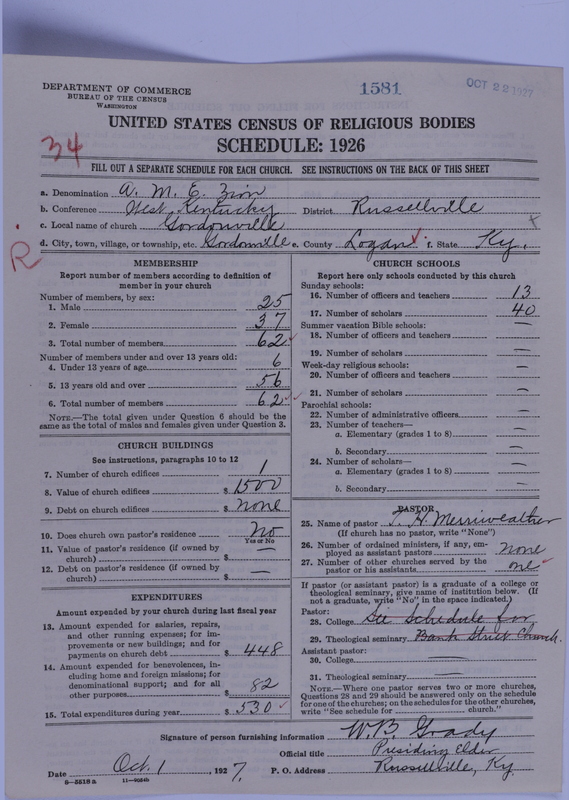 DEPARTMENT OF COMMERCE
BUREAU OF THE CENSUS
WASHINGTON
1581
OCT 22 1927
UNITED STATES CENSUS OF RELIGIOUS BODIES
SCHEDULE: 1926
34
FILL OUT A SEPARATE SCHEDULE FOR EACH CHURCH. SEE INSTRUCTIONS ON THE BACK OF THIS SHEET
a. Denomination A. M. E. Zion
b. Conference West Kentucky District Russellville
c. Local name of church Gordonville
d. City, town, village, or township, etc. Gordonville e. County Logan f. State Ky.
R
MEMBERSHIP
Report number of members according to definition of member in your church
Number of members, by sex:
1. Male 25
2. Female 37
3. Total number of members 62
Number of members under and over 13 years old:
4. Under 13 years of age 6
5. 13 years old and over 56
6. Total number of members 62
NOTE.—The total given under Question 6 should be the same as the total of males and females given under Question 3.
CHURCH BUILDINGS
See instructions, paragraphs 10 to 12
7. Number of church edifices 1
8. Value of church edifices $ 1500
9. Debt on church edifices $ none
10. Does church own pastor's residence No
Yes or No
11. Value of pastor's residence (if owned by church) $ —
12. Debt on pastor's residence (if owned by church) $ —
EXPENDITURES
Amount expended by your church during last fiscal year
13. Amount expended for salaries, repairs, and other running expenses; for improvements or new buildings; and for payments on church debt $ 448
14. Amount expended for benevolences, including home and foreign missions; for denominational support; and for all other purposes $ 82
15. Total expenditures during year $ 530
CHURCH SCHOOLS
Report here only schools conducted by this church
Sunday schools:
16. Number of officers and teachers 13
17. Number of scholars 40
Summer vacation Bible schools:
18. Number of officers and teachers —
19. Number of scholars —
Week-day religious schools:
20. Number of officers and teachers —
21. Number of scholars —
Parochial schools:
22. Number of administrative officers —
23. Number of teachers—
a. Elementary (grades 1 to 8) —
b. Secondary —
24. Number of scholars—
a. Elementary (grades 1 to 8) —
b. Secondary —
PASTOR
25. Name of pastor T. H. Merriweather
(If church has no pastor, write "None")
26. Number of ordained ministers, if any, employed as assistant pastors none
27. Number of other churches served by the pastor or his assistants one
If pastor (or assistant pastor) is a graduate of a college or theological seminary, give name of institution below. (If not a graduate, write "No" in the space indicated.)
Pastor:
28. College See Schedule for
29. Theological seminary Bank Street Church.
Assistant pastor:
30. College —
31. Theological seminary —
NOTE.—Where one pastor serves two or more churches, Questions 28 and 29 should be answered only on the schedule for one of the churches; on the schedules for the other churches, write "See schedule for church."
Signature of person furnishing information W. B. Grady
Official title Presiding Elder
Date Oct. 1, 1927. P. O. Address Russellville, Ky.